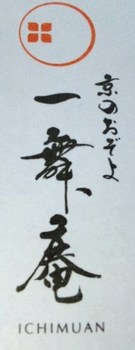 京のおぞよ
一舞庵
ICHIMUAN